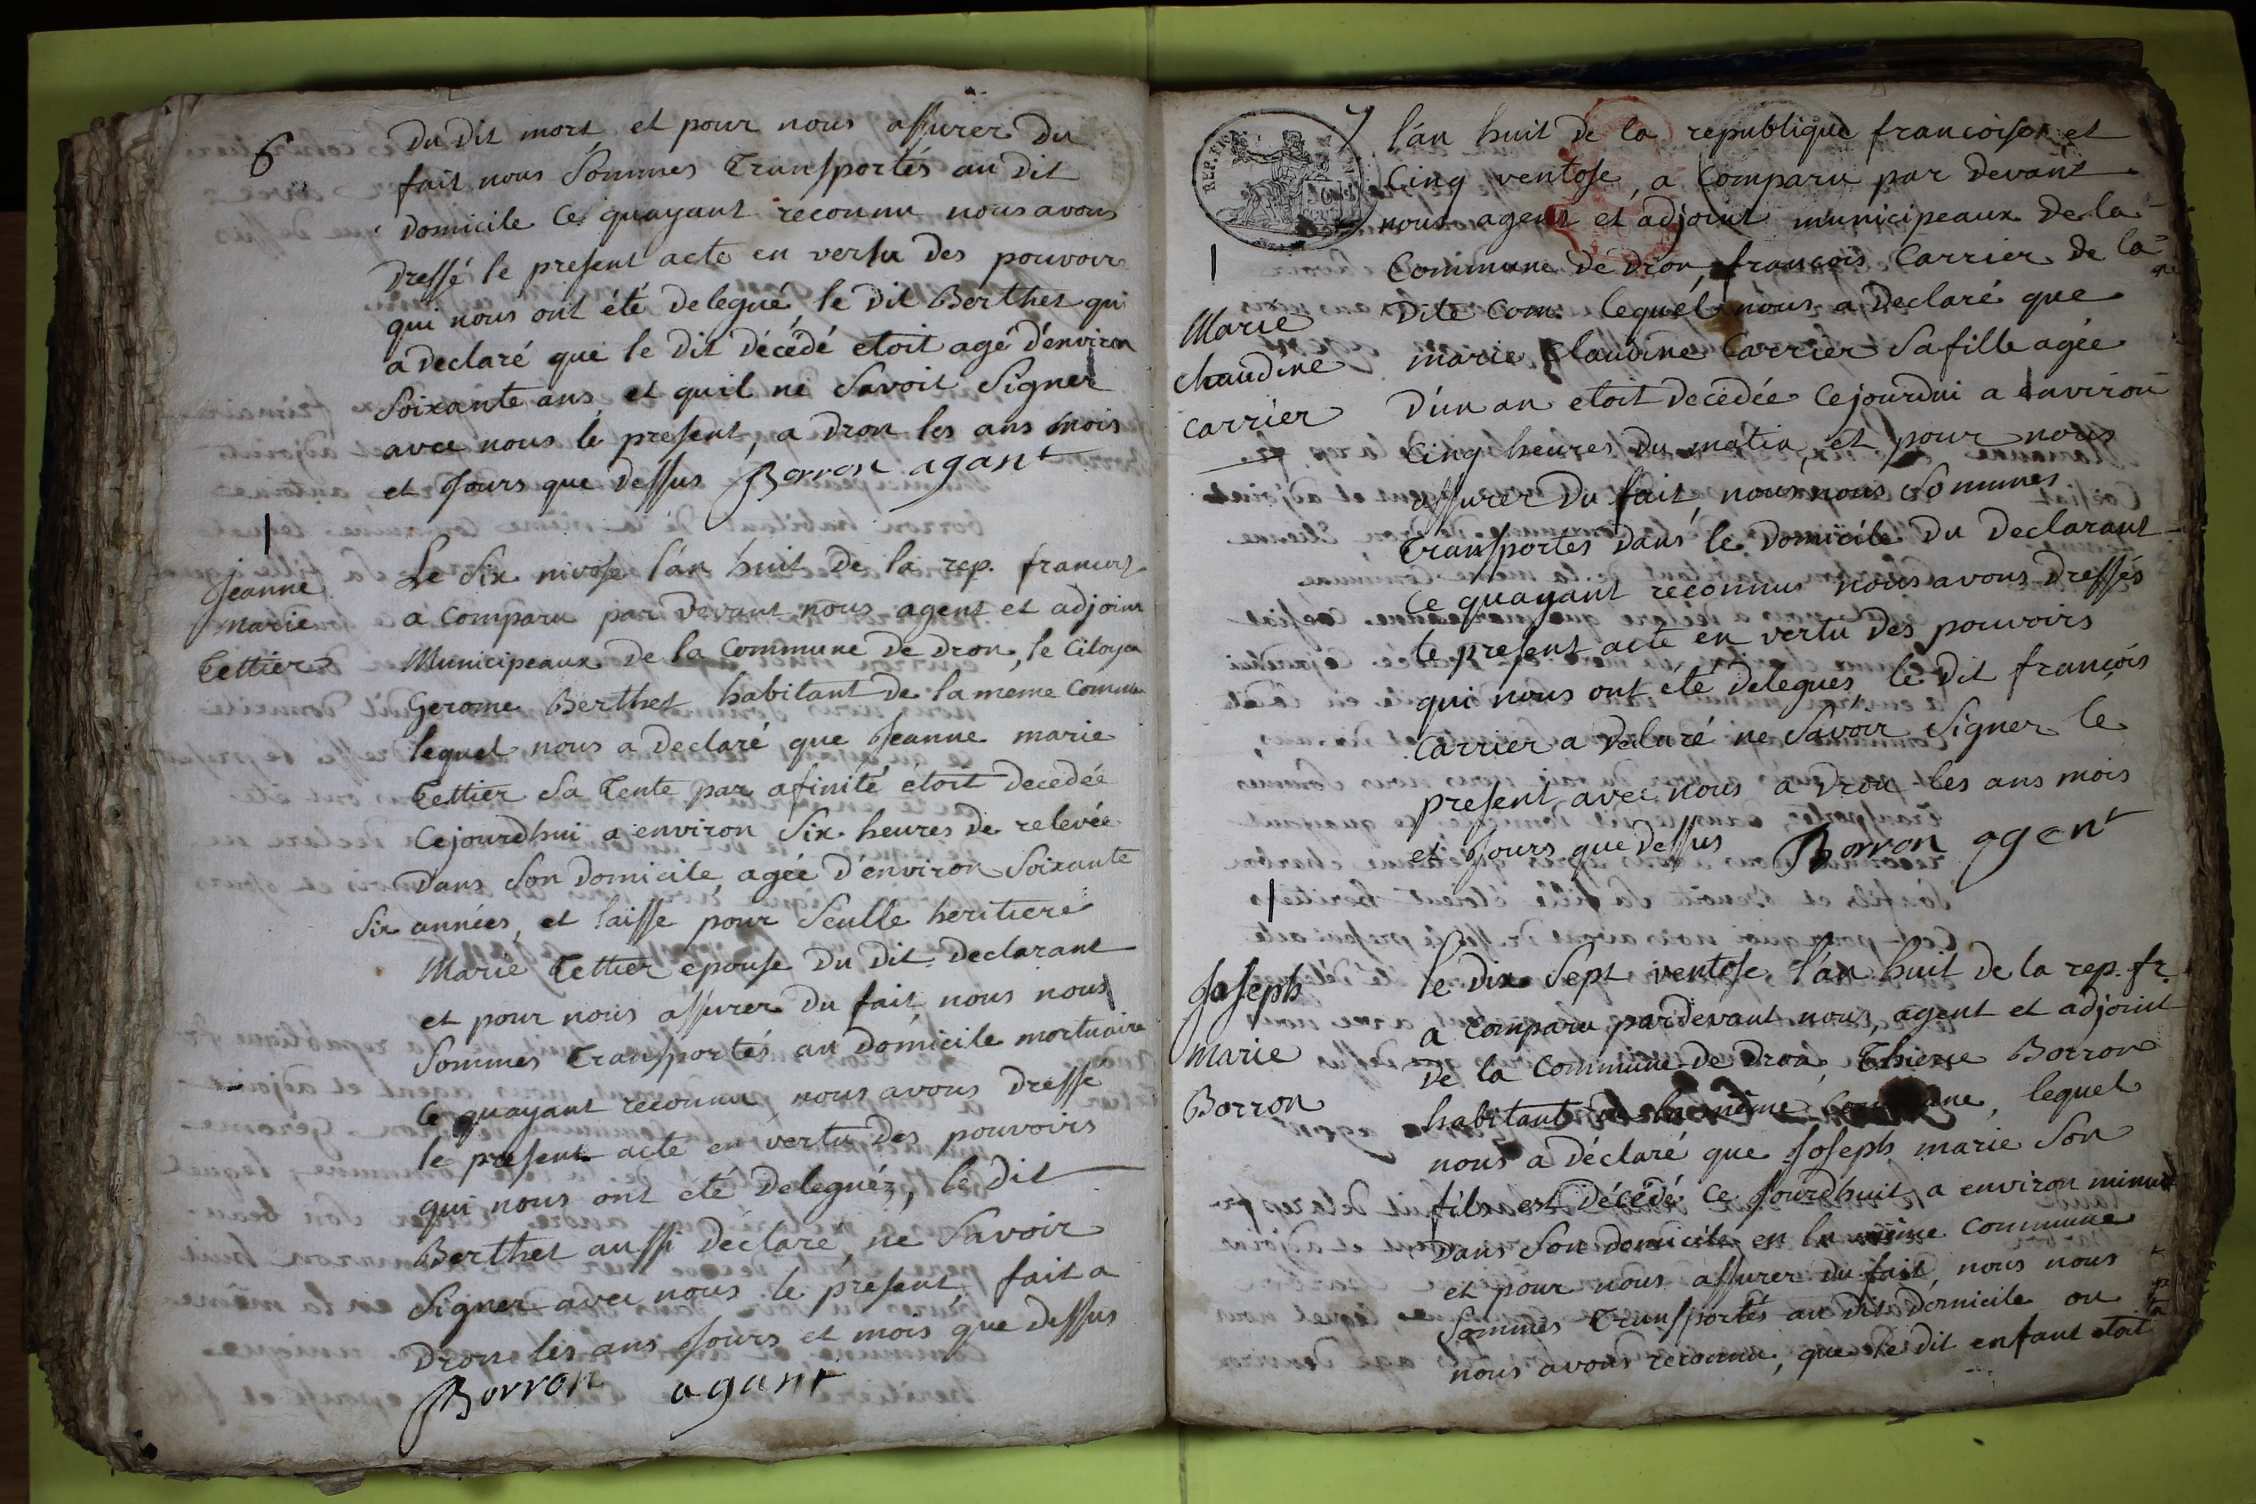 6
du dit mort et pour nous assurer du
fait nous Sommes Transportés au dit
domicile ce quayant reconnu nous avons
dressé le present acte en vertu des pouvoir
qui nous ont été delegué, le dit Berthet qui
a declaré que le dit décédé etoit agé d'environ
Soixante ans et quil ne Savoit Signer
avec nous le present, a dron les ans mois
et Jours que dessus Borron agant
Jeanne
marie
Tettier
Le Six nivose l'an huit de la rep. francois
a comparu par devant nous agent et adjoint
Municipeaux de la commune de dron, le Citoyen
Gerome Berthet habitant de la meme comune
lequel nous a declaré que Jeanne marie
Tettier Sa Tente par afinité étoit decedée
Cejourdhui a environ Six heures de relevée
dans Son domicile, agée d'environ Soixante
Six années, et laisse pour Seulle heritiere
Marie Tettier epouse du dit declarant
et pour nous assurer du fait, nous nous
Sommes Transportés au domicile mortuaire
Ce quayant reconnu, nous avons dressé
le present acte en vertu des pouvoirs
qui nous ont eté deleguéz, le dit
Berthet aussi déclaré, ne Savoir
Signer avec nous le présent fait a
Dron les ans Jours et mois que dessus
Borron agant
7
REP. FRA
l'an huit de la republique francoise et
Cinq ventose, a Comparu par devant
nous agent et adjoint municipeaux de la
Commune de dron, françois Carrier de la
dite com.ne lequel nous a declaré que
marie Claudine Carrier Sa fille agée
d'un an etoit decédée cejourdui a environ
cinq heures du matin, et pour nous
assurer du fait, nous nous Sommes
Transportés dans le domicile du declarant
Ce quayant reconnus nous avons dressés
le present acte en vertu des pouvoirs
qui nous ont été delegués, le dit françois
Carrier a declaré ne Savoir Signer le
present avec nous a dron les ans mois
et Jours que dessus Borron agent
Marie
Chaudine
Carrier
Joseph
marie
Borron
le dix Sept ventose, l'an huit de la rep. fr.
a comparu pardevant nous, agent et adjoint
de la commune de dron, Borron
habitant de la même commune, lequel
nous a déclaré que Joseph marie Son
fils est décédé ce Jourdhuit a environ minuit
dans Son domicile en la même commune
et pour nous assurer du fait, nous nous
Sommes Transportés au dit domicile ou
nous avons reconnu, que le dit enfant etoit